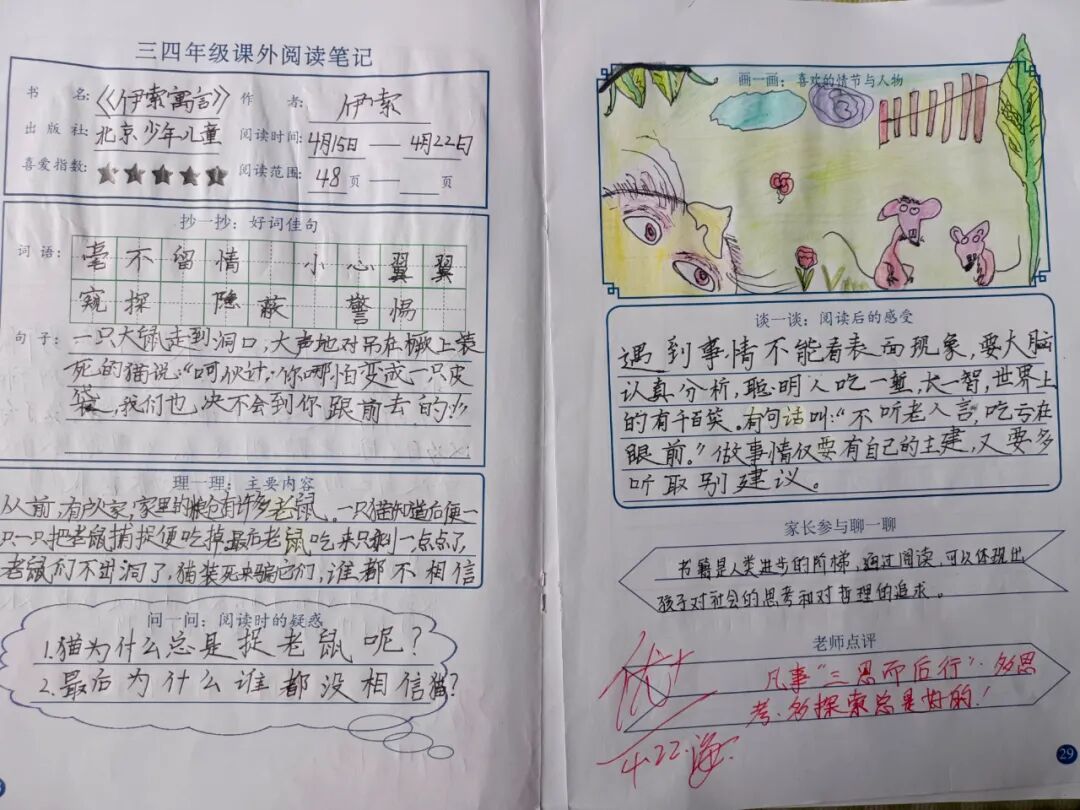 三四年级课外阅读笔记
书名：《伊索寓言》 作者：伊索
出版社：北京少年儿童 阅读时间：4月15日 — 4月22日
喜爱指数：★★★★★ 阅读范围：48页 — 页
抄一抄：好词佳句
词语：毫不留情 小心翼翼
窥探 隐蔽 警惕
句子：一只大鼠走到洞口，大声地对吊在橛上装
死的猫说：“呵伙计，你哪怕变成一只皮
袋，我们也决不会到你跟前去的。”
理一理：主要内容
从前，有户人家，家里的粮仓有许多老鼠。一只猫知道后便一
只一只把老鼠捕捉便吃掉最后老鼠吃来只剩一点点了，
老鼠们不出洞了，猫装死来骗它们，谁都不相信
问一问：阅读时的疑惑
1.猫为什么总是捉老鼠呢？
2.最后为什么谁都没相信猫？
画一画：喜欢的情节与人物
谈一谈：阅读后的感受
遇到事情不能看表面现象，要大脑
认真分析，聪明人吃一堑，长一智，世界上
的有千百笑。有句话叫：“不听老人言，吃亏在
眼前。”做事情仅要有自己的土建，又要多
听取别建议。
家长参与聊一聊
书籍是人类进步的阶梯，通过阅读，可以体现出
孩子对社会的思考和对哲理的追求。
老师点评
优+
凡事“三思而后行”.多思
考、多探索总是好的！
4.22.海
29